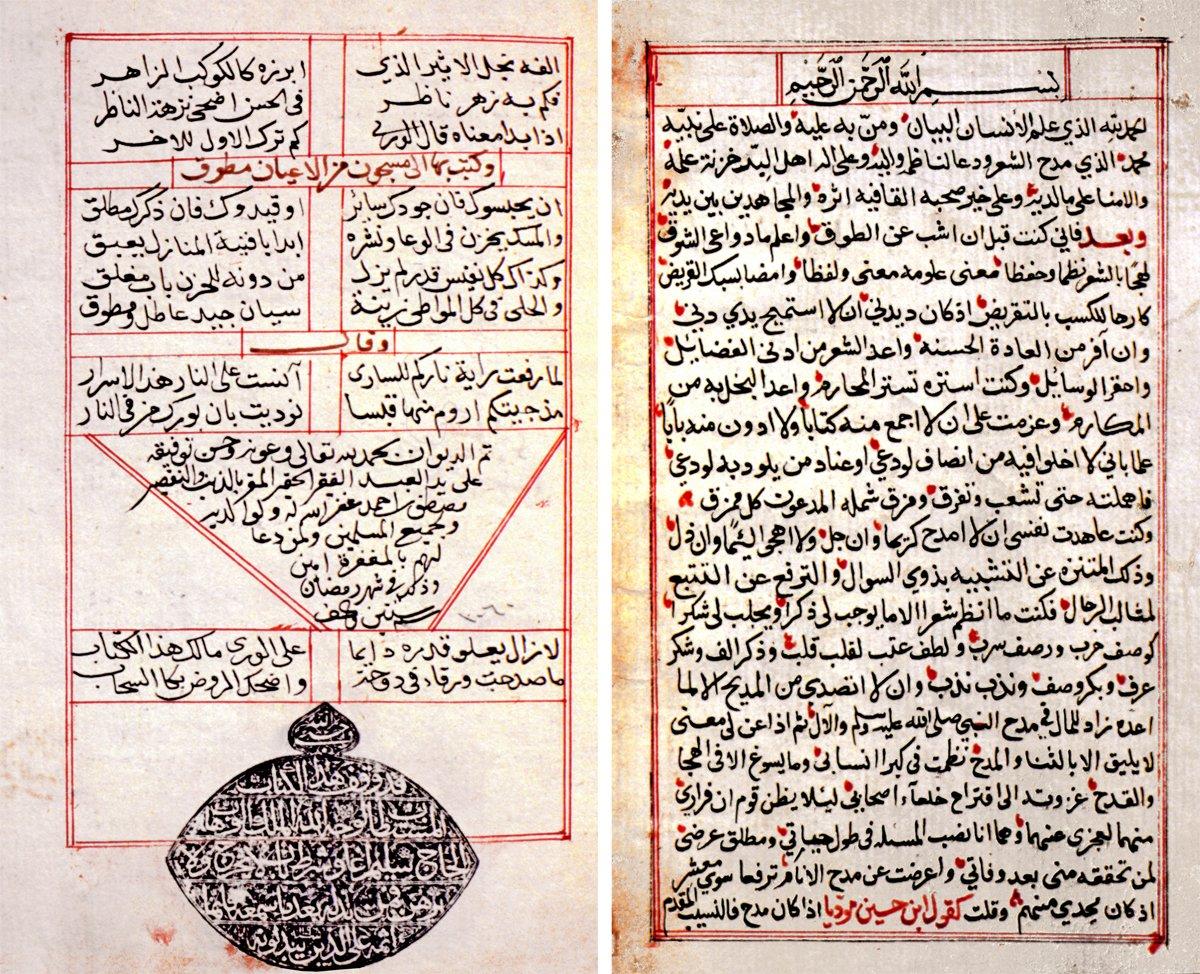 بسم الله الرحمن الرحيم
الحمد لله الذي علم الانسان البيان ومن به عليه والصلاة على نبيه
محمد الذي مدح الشعر ودعا لناظمه واليه وعلى اله اهل البيت خزنة علمه
والامنا على مالديه وعلى خير صحبه القافيه اثره والمجاهدين بين يديه
وبعد فاني كنت قبل ان اشب عن الطوق واعلم ما دواعي الشوق
لهجا بالشعر نظما وحفظا معنى علومه معنى ولفظا وامضا بسبك القريض
كارها للكسب بالتقريض اذ كان ديدني ان لا استميح يدي دني
وان افر من العادة الحسنه واعد الشعر من ادنى الفضايل
واحقر الوسايل وكنت استره تستر المحارم واعدا البخل به من
المكارم وعزمت على ان لا اجمع منه كتابا ولا ادون منه بابا
علما باني لا اخلوا فيه من انصاف لودعي او عناد من يلود به لودعي
فاهملته حتى تشعب وتفرق ومزق شمله المدعون كل ممزق
وكنت عاهدت نفسي ان لا امدح كريما وان جل ولا اهجي لئيما وان ذل
وذلك المتنزه عن التشبيه بذوي السوال والترفع عن التتبع
لمثالب الرجال فكنت ما انظم شعرا الا ما يوجب لي ذكرا ويجلب لي شكرا
كوصف حرب ورصف سرب ولطف عتب لقلب قلب وذكر الف وشكر
عرف وبكر وصف وندب ندب وان لا اتصدى من المديح الا لما
اعده زاد للمال في مدح النبي صلى الله عليه وسلم والآل ثم اذا عن لي معنى
لا يليق الا بالثنا والمدح نظمت في كبرا انسابي وما يسوغ الا في الهجا
والقدح عزوته الى اقتراح خلعاء اصحابي ليلا يظن قوم ان فراري
منهما لعجزي عنهما وها انا نصب المسله في طول حياتي ومطلق عرضي
لمن تحققه مني بعد وفاتي واعرضت عن مدح الانام ترفعا سوى معشر
اذ كان مجدي منهم وقلت كقول ابن حسين مودبا اذا كان مدح فالنسيب المقدم
الفه نجل الاثير الذي ابرزه كالكوكب الزاهر
فكم به زهر ناظر في الحسن اضحى نزهة الناظر
اذا بدا معناه قال الورى كم ترك الاول للاخر
وكتب بها الى مسجون من الاعيان مطوق
ان يحبسوك فان جودك سائر او قيدوك فان ذكرك مطلق
والمسك يخزن في الوعا ونشره ابدا بافنية المنازل يعبق
وكذاك كل نفيس قدر لم يزل من دونه الحزن باب مغلق
والحلي في كل المواطن زينة سيان جيد عاطل ومطوق
وقال
لما رفعت راية ناركم للساري آنست على النار هدا الاسرار
مذ جيتكم اروم منها قبسا نوديت بان بورك من في النار
تم الديوان بحمد الله تعالى وعونه وحسن توفيقه
على يد العبد الفقير الحقير المقر بالذنب والتقصير
مصطفى احمد غفر الله له ولوالديه
ولجميع المسلمين ولمن دعا
لهم بالمغفرة امين
وذلك في شهر رمضان
سنة ستين والف ١٠٦٠
لازال يعلو قدره دايما على الورى مالك هذا الكتاب
ما صدحت ورقاء في دوحة واضحك الروض بكا السحاب
قد وقف هذا الكتاب